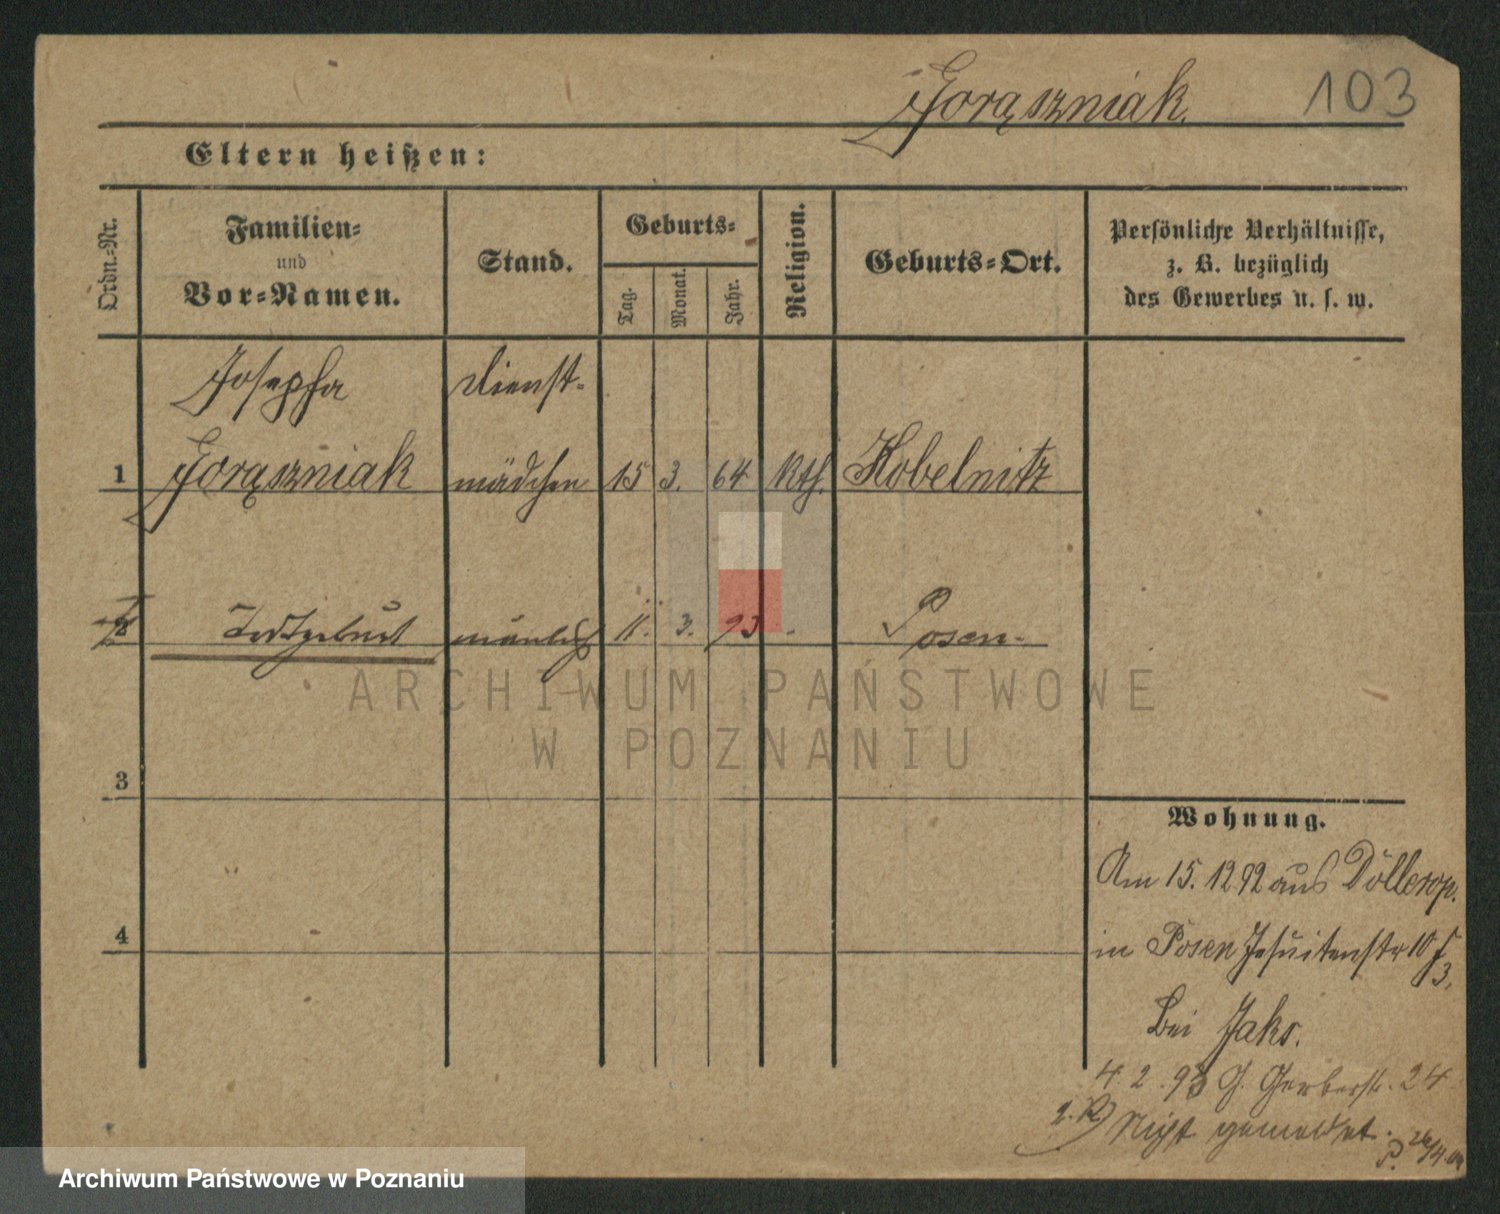 Gorąszniak.
103
Eltern heißen:
Ordn.-Nr.
Familien-
und
Vor-Namen.
Stand.
Geburts-
Tag.
Monat.
Jahr.
Religion.
Geburts-Ort.
Persönliche Verhältnisse,
z. B. bezüglich
des Gewerbes u. s. w.
Josepha Dienst-
1 Gorąszniak mädchen 15 3. 64 Kth. Kobelnitz
2 Todtgeburt mänlich 11. 3. 93 Posen.
ARCHIWUM PAŃSTWOWE
W POZNANIU
3
4
Wohnung.
Am 15. 12 92 aus
in Posen Jesuitenstr 10
3.
Bei Jaks.
4. 2. 93 Gerberstr. 24
Nicht gemeldet.
Archiwum Państwowe w Poznaniu